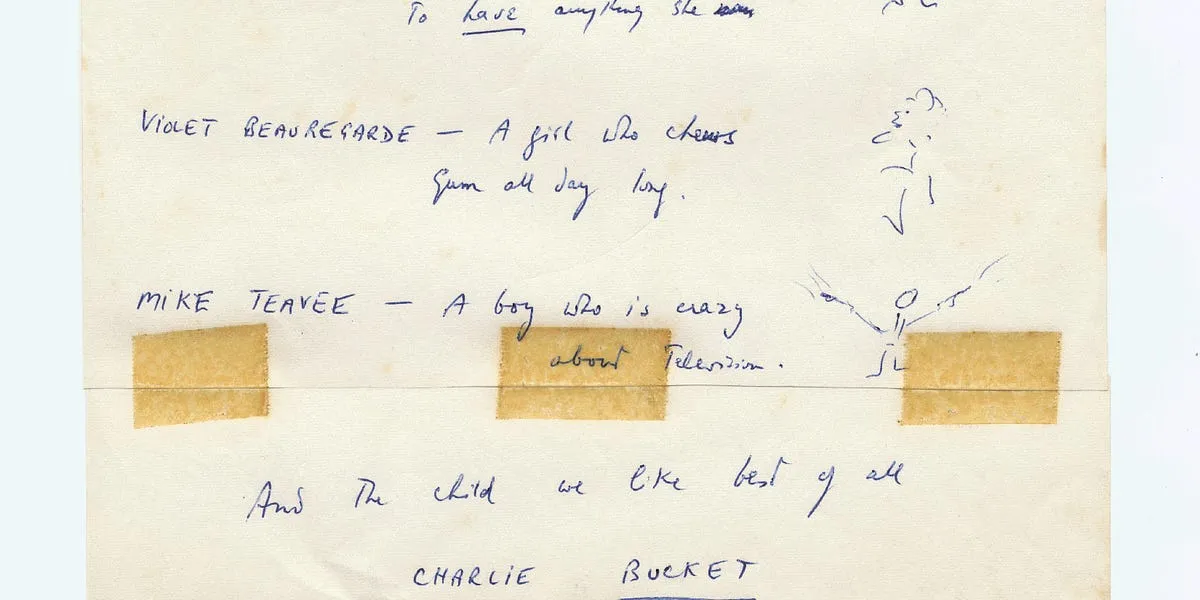 To have anything she
VIOLET BEAUREGARDE — A girl who chews
gum all day long.
MIKE TEAVEE — A boy who is crazy
about Television.
And The child we like best of all
CHARLIE BUCKET